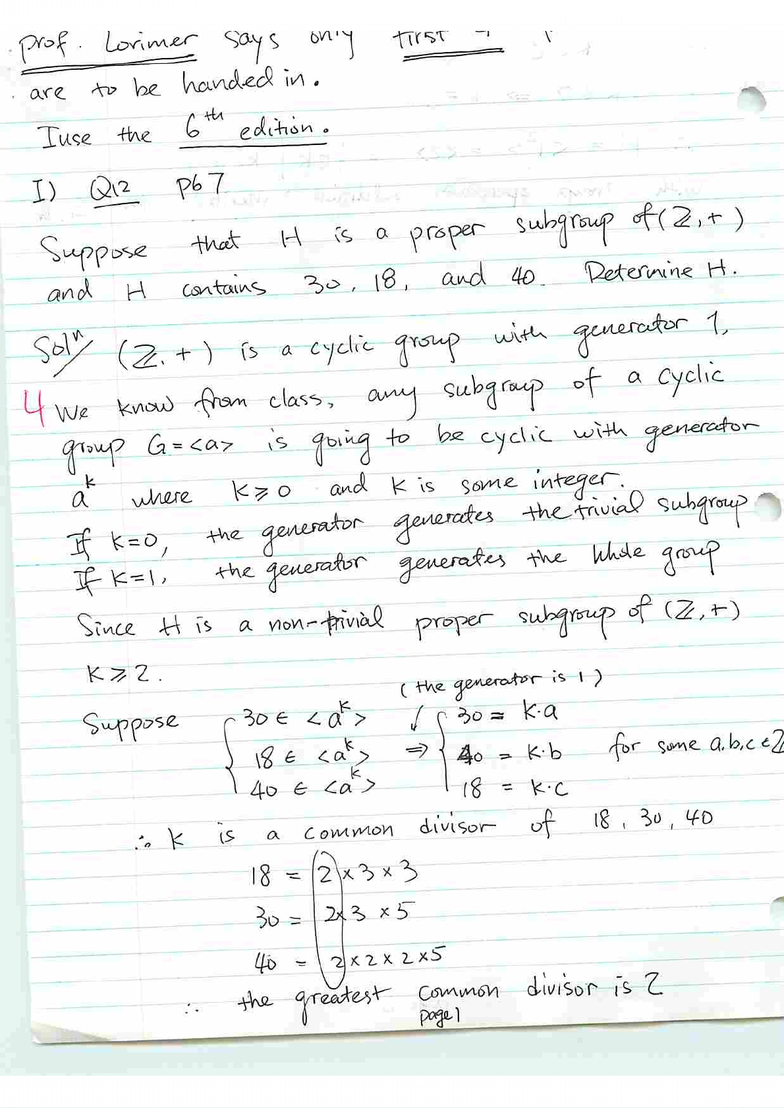 prof. Lorimer says only first
are to be handed in.
I use the 6th edition.
I) Q12 p67
Suppose that H is a proper subgroup of (ℤ,+)
and H contains 30, 18, and 40. Determine H.
Solⁿ/ (ℤ,+) is a cyclic group with generator 1,
4 We know from class, any subgroup of a cyclic
group G = <a> is going to be cyclic with generator
a^k where k ⩾ 0 and k is some integer.
If k=0, the generator generates the trivial subgroup
If k=1, the generator generates the whole group
Since H is a non-trivial proper subgroup of (ℤ,+)
k ⩾ 2.
(the generator is 1)
Suppose { 30 ∈ <a^k> ⇒ { 30 = k·a
18 ∈ <a^k> 40 = k·b for some a,b,c ∈ ℤ
40 ∈ <a^k> 18 = k·c
∴ k is a common divisor of 18, 30, 40
18 = 2 × 3 × 3
30 = 2 × 3 × 5
40 = 2 × 2 × 2 × 5
∴ the greatest common divisor is 2
page 1